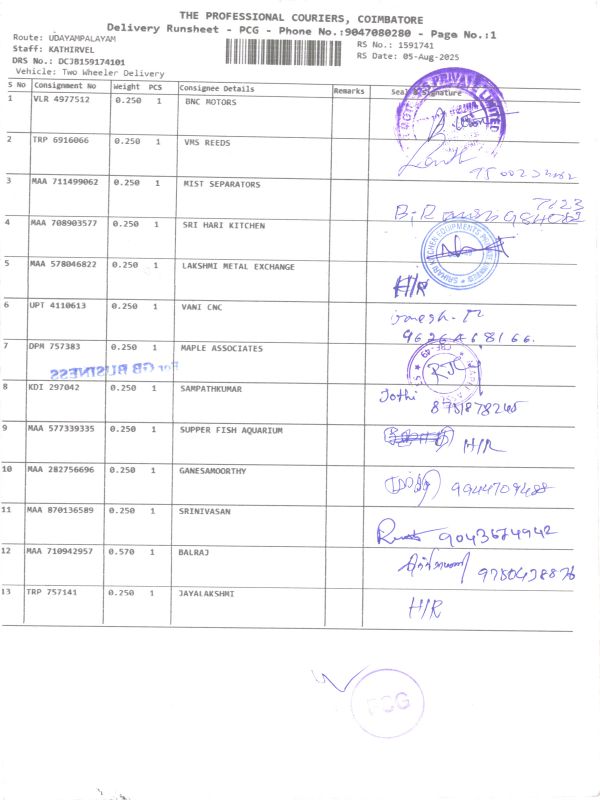 THE PROFESSIONAL COURIERS, COIMBATORE
Delivery Runsheet - PCG - Phone No.:9047080280 - Page No.:1
Route: UDAYAMPALAYAM RS No.: 1591741
Staff: KATHIRVEL RS Date: 05-Aug-2025
DRS No.: DCJB159174101
Vehicle: Two Wheeler Delivery
S No Consignment No Weight PCS Consignee Details Remarks Seal & Signature
1 VLR 4977512 0.250 1 BNC MOTORS
2 TRP 6916066 0.250 1 VMS REEDS
3 MAA 711499062 0.250 1 MIST SEPARATORS
4 MAA 708903577 0.250 1 SRI HARI KITCHEN
SRIHARI KITCHEN EQUIPMENTS PRIVATE LIMITED
5 MAA 578046822 0.250 1 LAKSHMI METAL EXCHANGE H/R
6 UPT 4110613 0.250 1 VANI CNC
9626468166.
7 DPM 757383 0.250 1 MAPLE ASSOCIATES
For GB BUSINESS
8 KDI 297042 0.250 1 SAMPATHKUMAR Jothi
9 MAA 577339335 0.250 1 SUPPER FISH AQUARIUM H/R
10 MAA 282756696 0.250 1 GANESAMOORTHY 9944709488
11 MAA 870136589 0.250 1 SRINIVASAN 9043674942
12 MAA 710942957 0.570 1 BALRAJ
13 TRP 757141 0.250 1 JAYALAKSHMI H/R
PCG